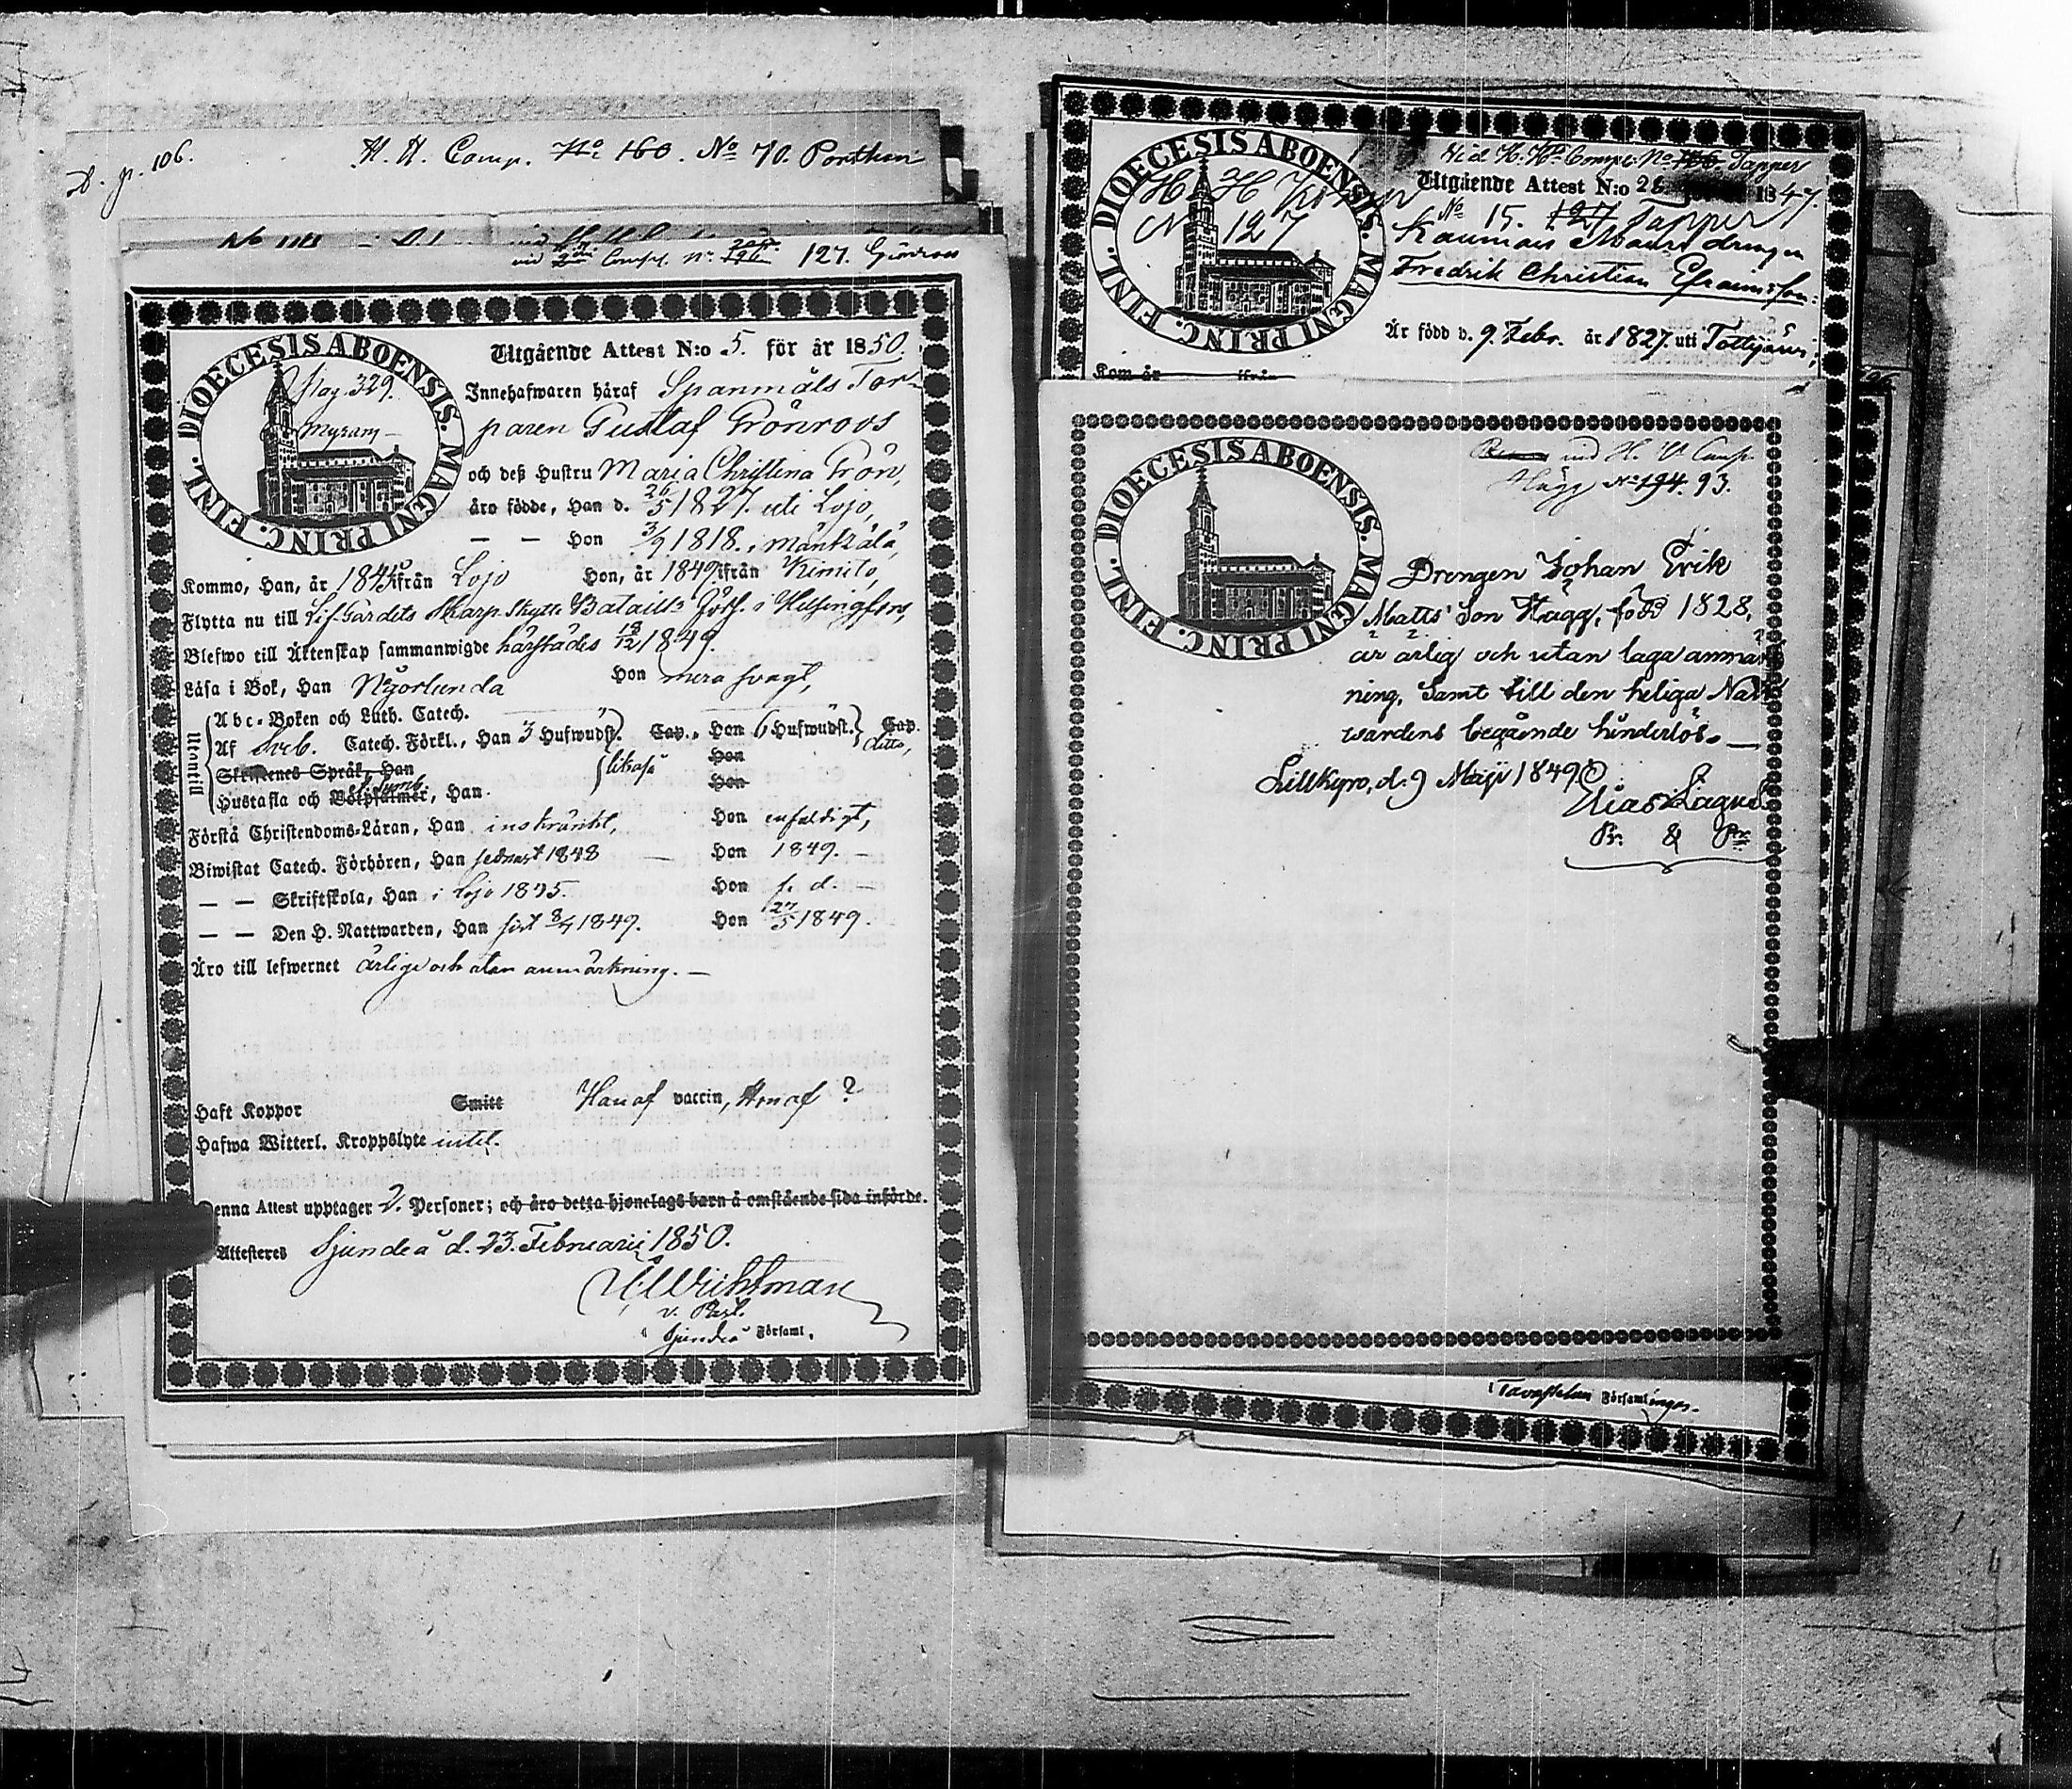 D. p. 106.
H. H. Comp. No 160. No 70. Porthan
127. Grönroos
DIOECESIS ABOENSIS. MAGNI PRINC. FINL.
Pag. 329.
Utgående Attest N:o 5. för år 1850.
Innehafwaren häraf Spanmåls Tor-
paren Gustaf Grönroos
och deß Hustru Maria Christina Grön,
äro födde, Han d. 26/5 1827. uti Lojo,
— — Hon 3/9 1818. i Mäntzälä,
Kommo, Han, år ifrån Lojo Hon, år 1849 ifrån Kimito,
Flytta nu till Lif-Gardets Skarp-Skytte Bataill:s Förs. i Helsingfors,
Blefwo till Äktenskap sammanwigde härstädes 18/12 1849.
Läsa i Bok, Han Hon mera svagt,
Utantill
Abc-Boken och Luth. Catech.
Af Sveb. Catech. Förkl., Han 3 Hufwudst. Cap., Hon 6 Hufwudst. Cap.
ditto,
Skriftenes Språk, Han likaså Hon
Symb.
Hustafla och Botpsalmer, Han. Hon
Förstå Christendoms-Läran, Han inskränkt, Hon enfaldigt,
Biwistat Catech. Förhören, Han sednast 1848 — Hon 1849. —
— — Skriftskola, Han i Lojo 1845. Hon f. d. —
— — Den H. Nattwarden, Han sist 8/4 1849. Hon 27/5 1849.
Äro till lefwernet ärlige och utan anmärkning. —
Haft Koppor Smitt Han af vaccin, Hon af ?
Hafwa Witterl. Kroppslyte intet.
Denna Attest upptager 2. Personer; och äro detta hjonelags barn å omstående sida införde.
Attesteres Sjundeå d. 23. Februarii 1850.
Wichtman
v. Past.
i Sjundeå Församl.
DIOECESIS ABOENSIS. MAGNI PRINC. FINL.
H H
No 127
Vid H. H. Comp. No 106 Tapper
Utgående Attest N:o 1847.
No 15. 127 Tapper
Fredrik Christian Efraimsson
Är född d. 9. Febr. år 1827. uti Tottijärvi,
Kom år ifrån
DIOECESIS ABOENSIS. MAGNI PRINC. FINL.
vid H. H. Comp.
Hägg No 194. 93.
Drengen Johan Erik
Matts' Son Hägg, född 1828,
är ärlig och utan laga anmärk
ning, samt till den heliga Natt
wardens begående hinderlös. —
Lillkyro, d. 9 Maji 1849
Elias Lagus
Pr. & Pr.
i Tavastehus Församlingar.